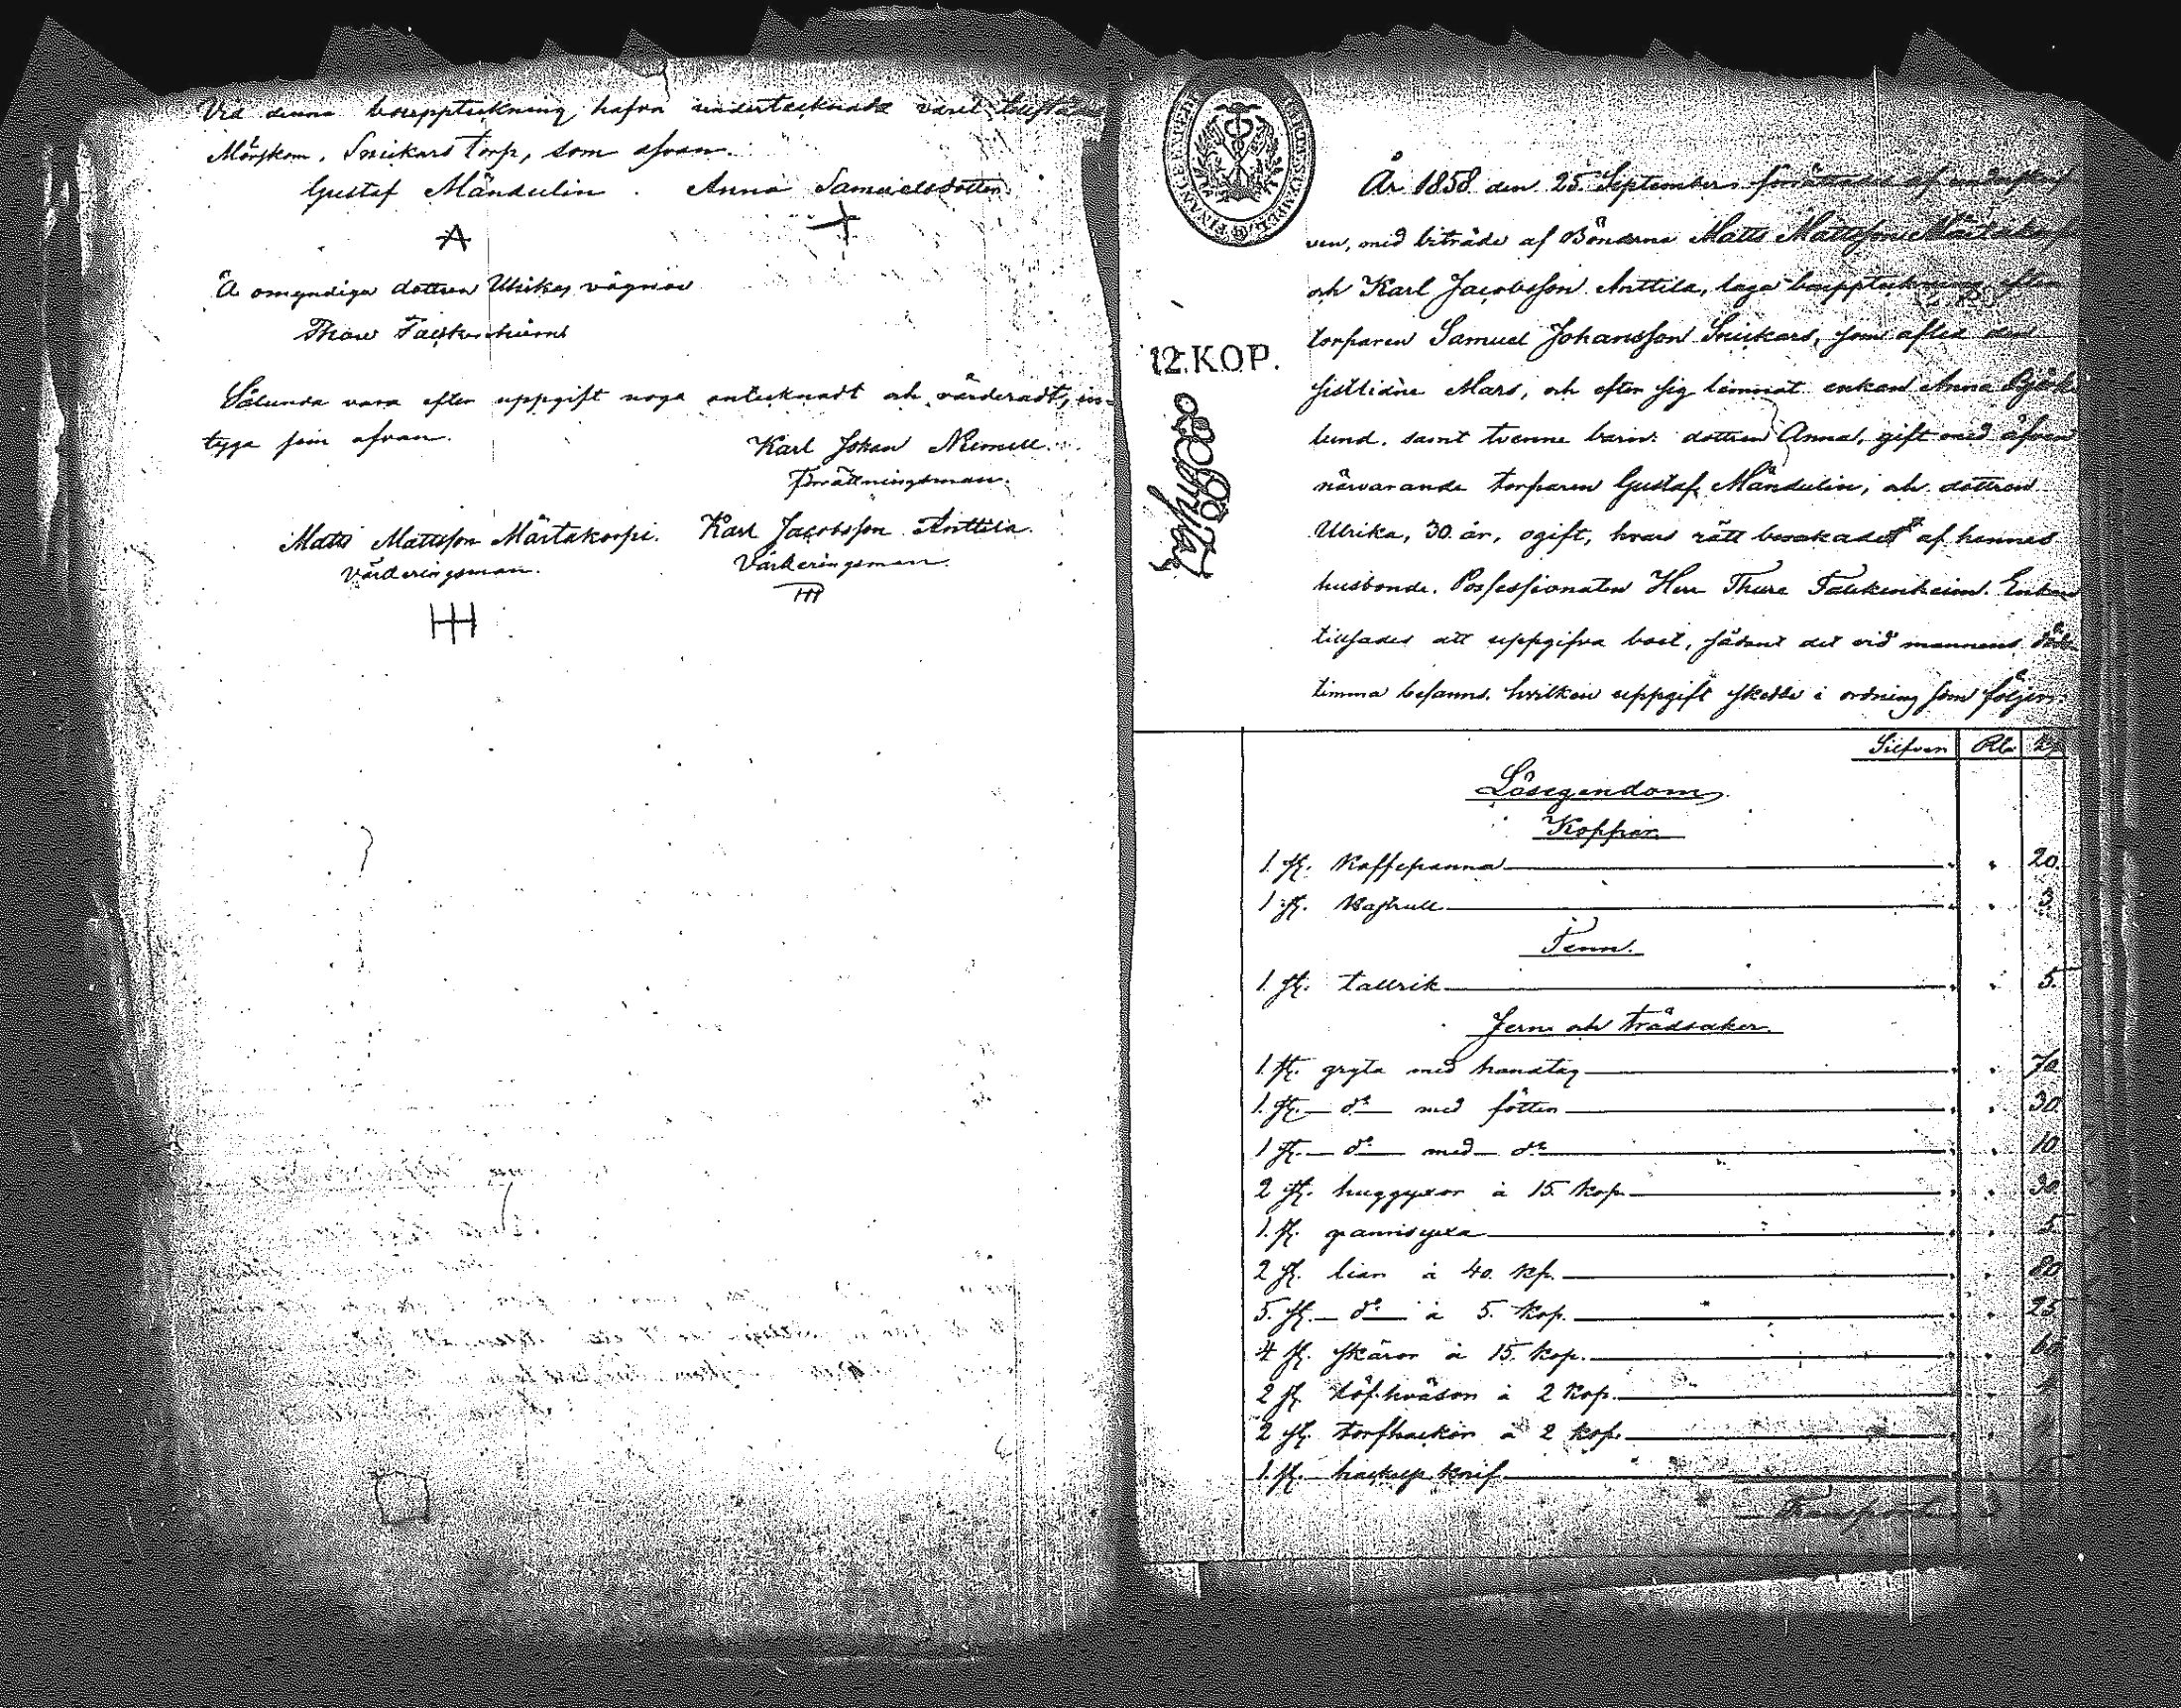 Vid denna bouppteckning hafva undertecknade varit tillstädes
Mörskom, Snickars torp, som ofvan.
Gustaf Mändulin. Anna Samuelsdotter.
Å omyndiga dottren Ulrikas vägnar
Thure Falckenheim
Sålunda vara efter uppgift noga antecknadt och värderadt, in-
tyga som ofvan.
Karl Johan
Förrättningsman.
Matts Mattsson Märtakorpi. Karl Jacobsson Anttila.
Värderingsman. Värderingsman.
12.KOP.
År 1858 den 25 September förrättades af
ven, med biträde af Bönderne Matts Mattsson Märtakorpi
och Karl Jacobsson Anttila, laga bouppteckning efter
torparen Samuel Johansson Snickars, som afled den
sistlidne Mars, och efter sig lemnat enkan Anna Björk-
lund, samt tvenne barn: dottren Anna, gift med äfven
närvarande torparen Gustaf Mändulin, och dottren
Ulrika, 30 år, ogift, hvars rätt bevakades af hennes
husbonde, Possessionaten Herr Thure Falckenheim. Enkan
tillsades att uppgifva boet, sådant det vid mannens döds-
timma befanns, hvilken uppgift skedde i ordning som följer:
Silfver Rbr Kp
Lösegendom
Koppar
1 st. Kaffepanna 20.
1 st. Kastrull 3.
Tenn.
1 st. tallrik 5.
Jern och trädsaker.
1 st. gryta med handtag 70
1 st. do med fötter 30.
1 st. do med do 10
2 st. huggyxor à 15 kop. 30
1 st. 5
2 st. liar à 40. kp. 80
5 st. do à 5. kop. 25
4 st. skäror à 15. kop. 60
2 st. à 2 kop. 4
2 st. torfhackor à 2 kop. 4
1 st. knif
Transport